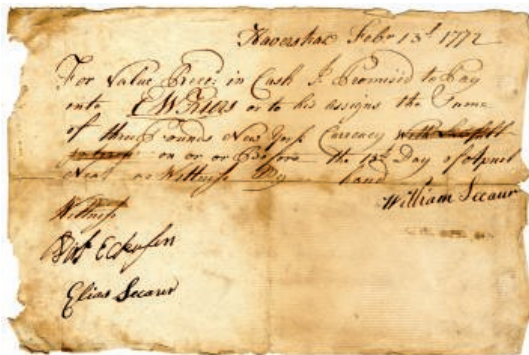 Haverstrae Febr 13th 1772
For Value Recei in Cash I Promised to Pay
unto or to his assigns the Sume
of three Pounds New York Currency with
on or or Before the 13th Day of Aprel
Next as Wittness My hand
William Secaur
Wittness
Elias Secaur